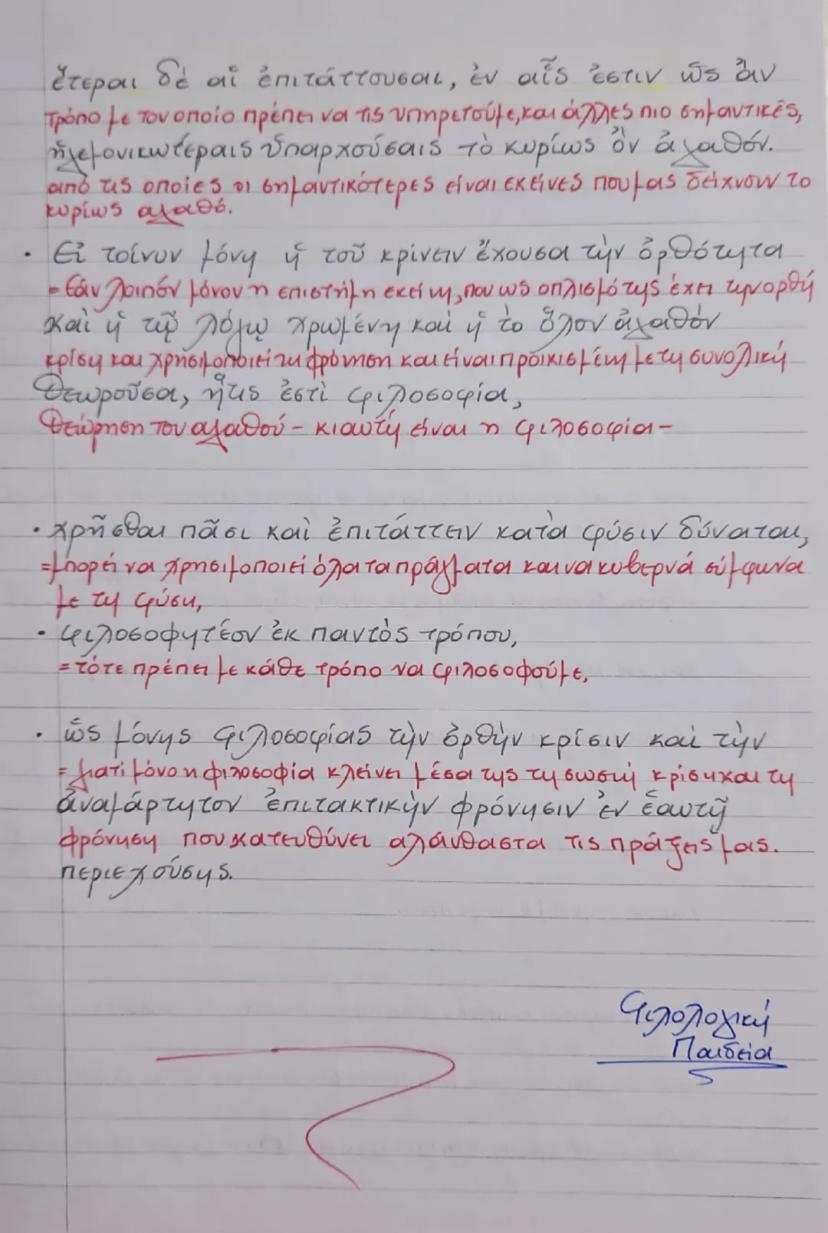 ἕτεραι δὲ αἱ ἐπιτάττουσαι, ἐν αἷς ἐστιν ὡς ἂν
τρόπο με τον οποίο πρέπει να τις υπηρετούμε, και άλλες πιο σημαντικές,
ἡγεμονικωτέραις ὑπαρχούσαις τὸ κυρίως ὂν ἀγαθόν.
από τις οποίες οι σημαντικότερες είναι εκείνες που μας δείχνουν το
κυρίως αγαθό.
· Εἰ τοίνυν μόνη ἡ τοῦ κρίνειν ἔχουσα τὴν ὀρθότητα
= Εάν λοιπόν μόνον η επιστήμη εκείνη, που ως οπλισμό της έχει την ορθή
καὶ ἡ τῷ λόγῳ χρωμένη καὶ ἡ τὸ ὅλον ἀγαθὸν
κρίση και χρησιμοποιεί τη φρόνηση και είναι προικισμένη με τη συνολική
θεωροῦσα, ἥτις ἐστὶ φιλοσοφία,
θεώρηση του αγαθού – κι αυτή είναι η φιλοσοφία –
· χρῆσθαι πᾶσι καὶ ἐπιτάττειν κατὰ φύσιν δύναται,
= μπορεί να χρησιμοποιεί όλα τα πράγματα και να κυβερνά σύμφωνα
με τη φύση,
· φιλοσοφητέον ἐκ παντὸς τρόπου,
= τότε πρέπει με κάθε τρόπο να φιλοσοφούμε,
· ὡς μόνης φιλοσοφίας τὴν ὀρθὴν κρίσιν καὶ τὴν
= γιατί μόνο η φιλοσοφία κλείνει μέσα της τη σωστή κρίση και τη
ἀναμάρτητον ἐπιτακτικὴν φρόνησιν ἐν ἑαυτῇ
φρόνηση που κατευθύνει αλάνθαστα τις πράξεις μας.
περιεχούσης.
Φιλολογική
Παιδεία